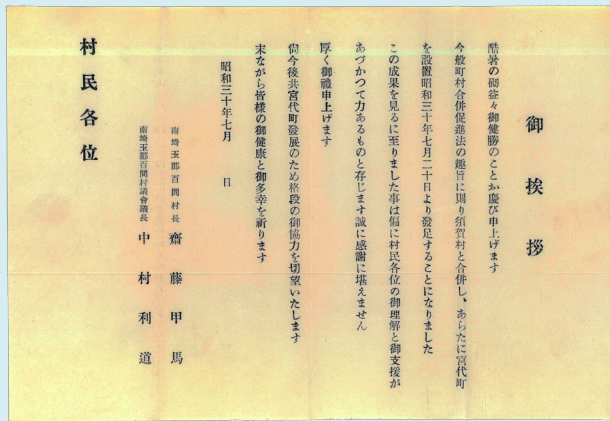 御挨拶
酷暑の砌益々御健勝のことゝ慶び申上げます
今般町村合併促進法の趣旨に則り須賀村と合併し、あらたに宮代町
を設置昭和三十年七月二十日より發足することになりました
この成果を見るに至りました事は偏に村民各位の御理解と御支援が
あづかつて力あるものと存じます誠に感謝に堪えません
厚く御禮申上げます
尙今後共宮代町發展のため格段の御協力を切望いたします
末ながら皆様の御健康と御多幸を祈ります
昭和三十年七月　日
南埼玉郡百間村長　齋藤甲馬
南埼玉郡百間村議會議長　中村利道
村民各位